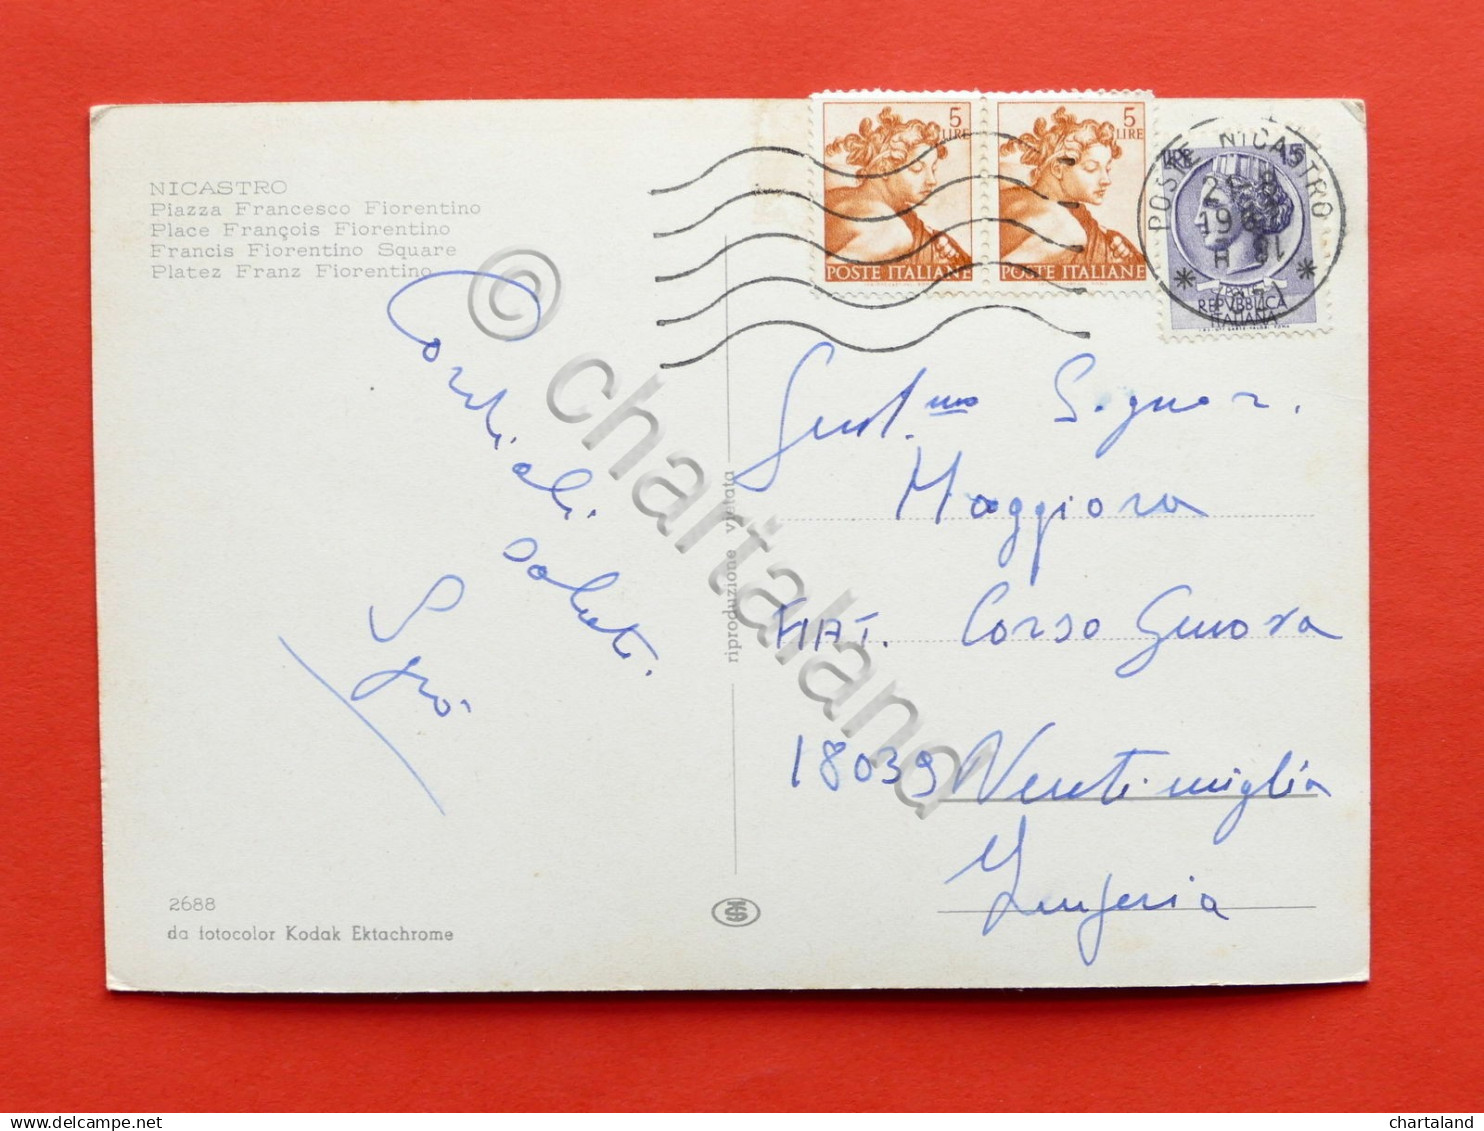 NICASTRO
Piazza Francesco Fiorentino
Place François Fiorentino
Francis Fiorentino Square
Platez Franz Fiorentino
Cordiali
saluti.
5
LIRE
POSTE ITALIANE
5
LIRE
POSTE ITALIANE
POSTE NICASTRO
LIRE 15
REPVBBLICA
ITALIANA
Gent.mo Signor.
Maggiora
FIAT. Corso Genova
18039 Ventimiglia
riproduzione vietata
2688
da fotocolor Kodak Ektachrome
© chartaland
chartaland